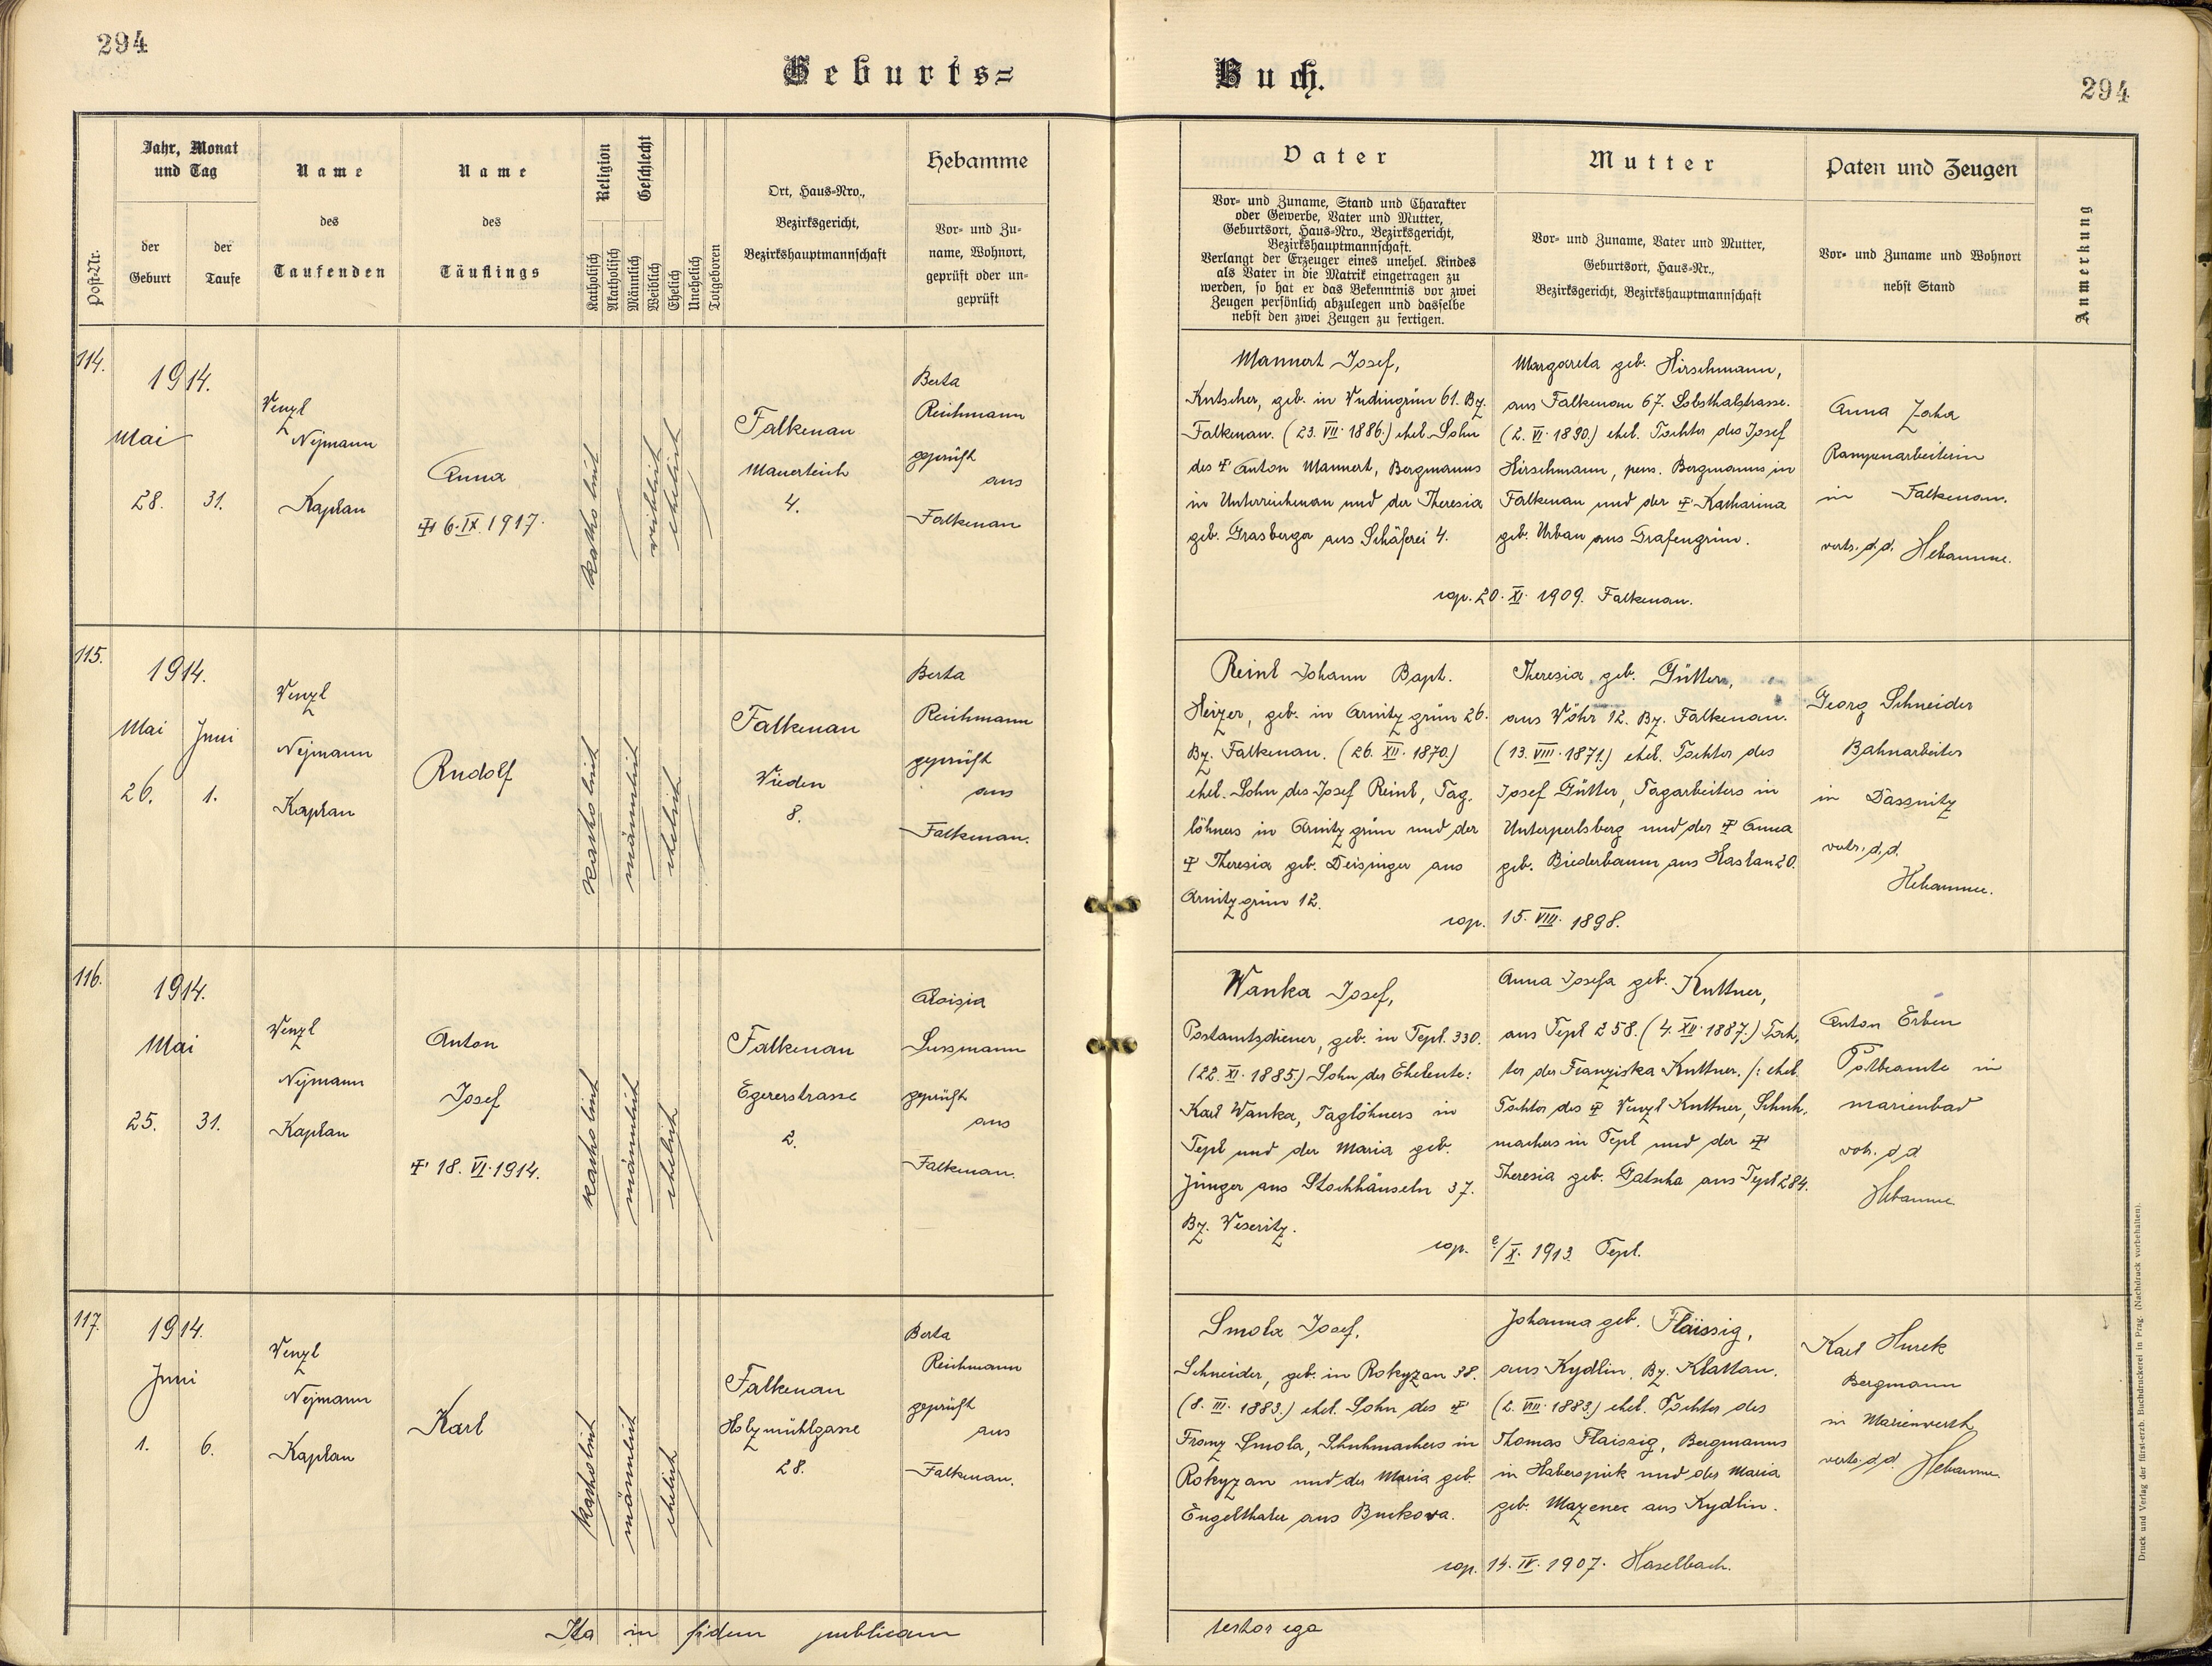 294
Geburts=
Buch.
294
Post-Nr.
Jahr, Monat
und Tag
der
Geburt
der
Taufe
Name
des
Taufenden
Name
des
Täuflings
Religion
Geschlecht
Katholisch
Akatholisch
Männlich
Weiblich
Ehelich
Unehelich
Totgeboren
Ort, Haus-Nro.,
Bezirksgericht,
Bezirkshauptmannschaft
Hebamme
Vor- und Zu-
name, Wohnort,
geprüft oder un-
geprüft
Vater
Vor- und Zuname, Stand und Charakter
oder Gewerbe, Vater und Mutter,
Geburtsort, Haus-Nro., Bezirksgericht,
Bezirkshauptmannschaft.
Verlangt der Erzeuger eines unehel. Kindes
als Vater in die Matrik eingetragen zu
werden, so hat er das Bekenntnis vor zwei
Zeugen persönlich abzulegen und dasselbe
nebst den zwei Zeugen zu fertigen.
Mutter
Vor- und Zuname, Vater und Mutter,
Geburtsort, Haus-Nr.,
Bezirksgericht, Bezirkshauptmannschaft
Paten und Zeugen
Vor- und Zuname und Wohnort
nebst Stand
Anmerkung
114.
1914.
Mai
28. 31.
Venzl
Nejmann
Kaplan
Anna
† 6. IX. 1917.
katholisch
weiblich
ehelich
Falkenau
Mauerteich
4.
Berta
Reichmann
geprüft
aus
Falkenau
Mannert Josef,
Kutscher, geb. in Vudingrün 61. Bz.
Falkenau. (23. VII. 1886.) ehel. Sohn
des † Anton Mannert, Bergmanns
in Unterreichenau und der Theresia
geb. Grasberger aus Schäferei 4.
Margareta geb. Hirschmann,
aus Falkenau 67. Lobsthalstrasse.
(2. VI. 1890.) ehel. Tochter des Josef
Hirschmann, pens. Bergmanns in
Falkenau und der † Katharina
geb. Urban aus Grafengrün.
cop. 20. XI. 1909. Falkenau.
Anna Zaha
Rampenarbeiterin
in Falkenau.
vertr. d. d. Hebamme.
115.
1914.
Mai Juni
26. 1.
Venzl
Nejmann
Kaplan
Rudolf
katholisch
männlich
ehelich
Falkenau
Vieden
8.
Berta
Reichmann
geprüft
aus
Falkenau.
Reinl Johann Bapt.
Heizer, geb. in Arnitzgrün 26.
Bz. Falkenau. (26. XII. 1870.)
ehel. Sohn des Josef Reinl, Tag-
löhners in Arnitzgrün und der
† Theresia geb. Deisinger aus
Arnitzgrün 12.
Theresia geb. Gütter,
aus Wöhr 12. Bz. Falkenau.
(13. VIII. 1871.) ehel. Tochter des
Josef Gütter, Tagarbeiters in
Unterperlsberg und der † Anna
geb. Biederbaum aus Haslau 20.
cop. 15. VIII. 1898.
Georg Schneider
Bahnarbeiter
in Dassnitz
vertr. d. d.
Hebamme.
116.
1914.
Mai
25. 31.
Venzl
Nejmann
Kaplan
Anton
Josef
† 18. VI. 1914.
katholisch
männlich
ehelich
Falkenau
Egererstrasse
2.
Aloisia
Sussmann
geprüft
aus
Falkenau.
Wanka Josef,
Postamtsdiener, geb. in Tepl 330.
(22. XI. 1885.) Sohn der Eheleute:
Karl Wanka, Taglöhners in
Tepl und der Maria geb.
Jünger aus Stockhäuseln 37.
Bz. Weseritz.
Anna Josefa geb. Kuttner,
aus Tepl 258. (4. XII. 1887.) Toch-
ter der Franziska Kuttner, /: ehel.
Tochter des † Venzl Kuttner, Schuh-
machers in Tepl und der †
Theresia geb. Gatscha aus Tepl 284.
cop. 2/X. 1913. Tepl.
Anton Erben
Postbeamte in
Marienbad
vertr. d. d
Hebamme
117.
1914.
Juni
1. 6.
Venzl
Nejmann
Kaplan
Karl
katholisch
männlich
ehelich
Falkenau
Holzmühlgasse
28.
Berta
Reichmann
geprüft
aus
Falkenau.
Smola Josef,
Schneider, geb. in Rokyzan 38.
(8. III. 1883.) ehel. Sohn des †
Franz Smola, Schuhmachers in
Rokyzan und der Maria geb.
Engelthaler aus Bukova.
Johanna geb. Flaissig,
aus Kydlin, Bz. Klattau.
(2. VIII. 1883.) ehel. Tochter des
Thomas Flaissig, Bergmanns
in Haberspirk und der Maria
geb. Mazenec aus Kydlin.
cop. 14. IV. 1907. Haselbach.
Karl Hurek
Bergmann
in Marienwerth
vertr. d. d. Hebamme.
Ita in fidem publicam
testor ego
Druck und Verlag der fürst-erzb. Buchdruckerei in Prag. (Nachdruck vorbehalten).